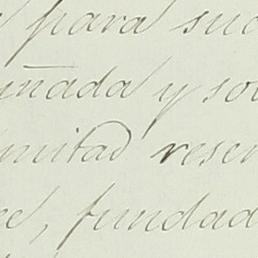 para suc
uñada y sob
mitad reser
ce, fundad